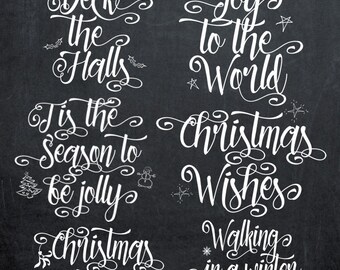 Deck
the
Halls
Joy
to the
World
Tis the
Season to
be jolly
Christmas
Wishes
Christmas
Walking
in a winter